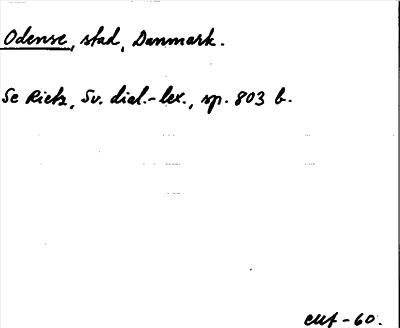 Odense, stad, Danmark.
Se Rietz, Sv. dial.-lex., sp. 803 b.
EMf -60.